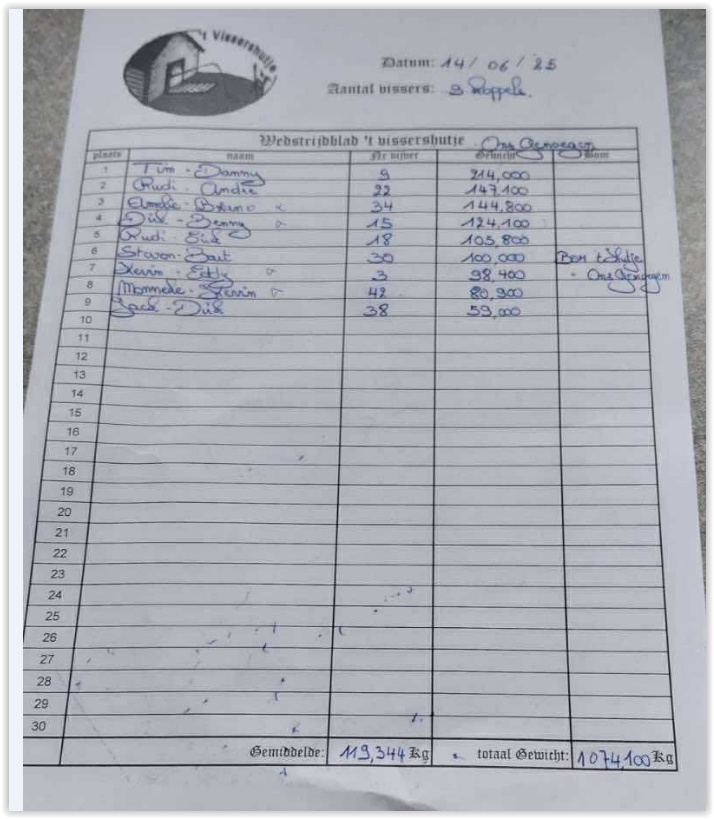 't Vissershutje
Datum: 14/06/25
Aantal vissers: 9 koppels.
Wedstrijdblad 't vissershutje Ons Genoegen
plaats naam Nr vijver Gewicht Bom
1 Tim - Danny 9 214,000
2 Rudi - André 22 147,100
3 Amelie - Bruno 34 144,800
4 Dirk - Benny 15 124,100
5 Rudi - 18 105,800
6 Steven - Bart 30 100,000 Bom 't Hutje
7 Kevin - Eddy 3 98,400 " Ons Genoegen
8 Kevin 42 80,900
9 Jack - Dirk 38 59,000
10
11
12
13
14
15
16
17
18
19
20
21
22
23
24
25
26
27
28
29
30
Gemiddelde: 119,344 Kg totaal Gewicht: 1074,100 Kg